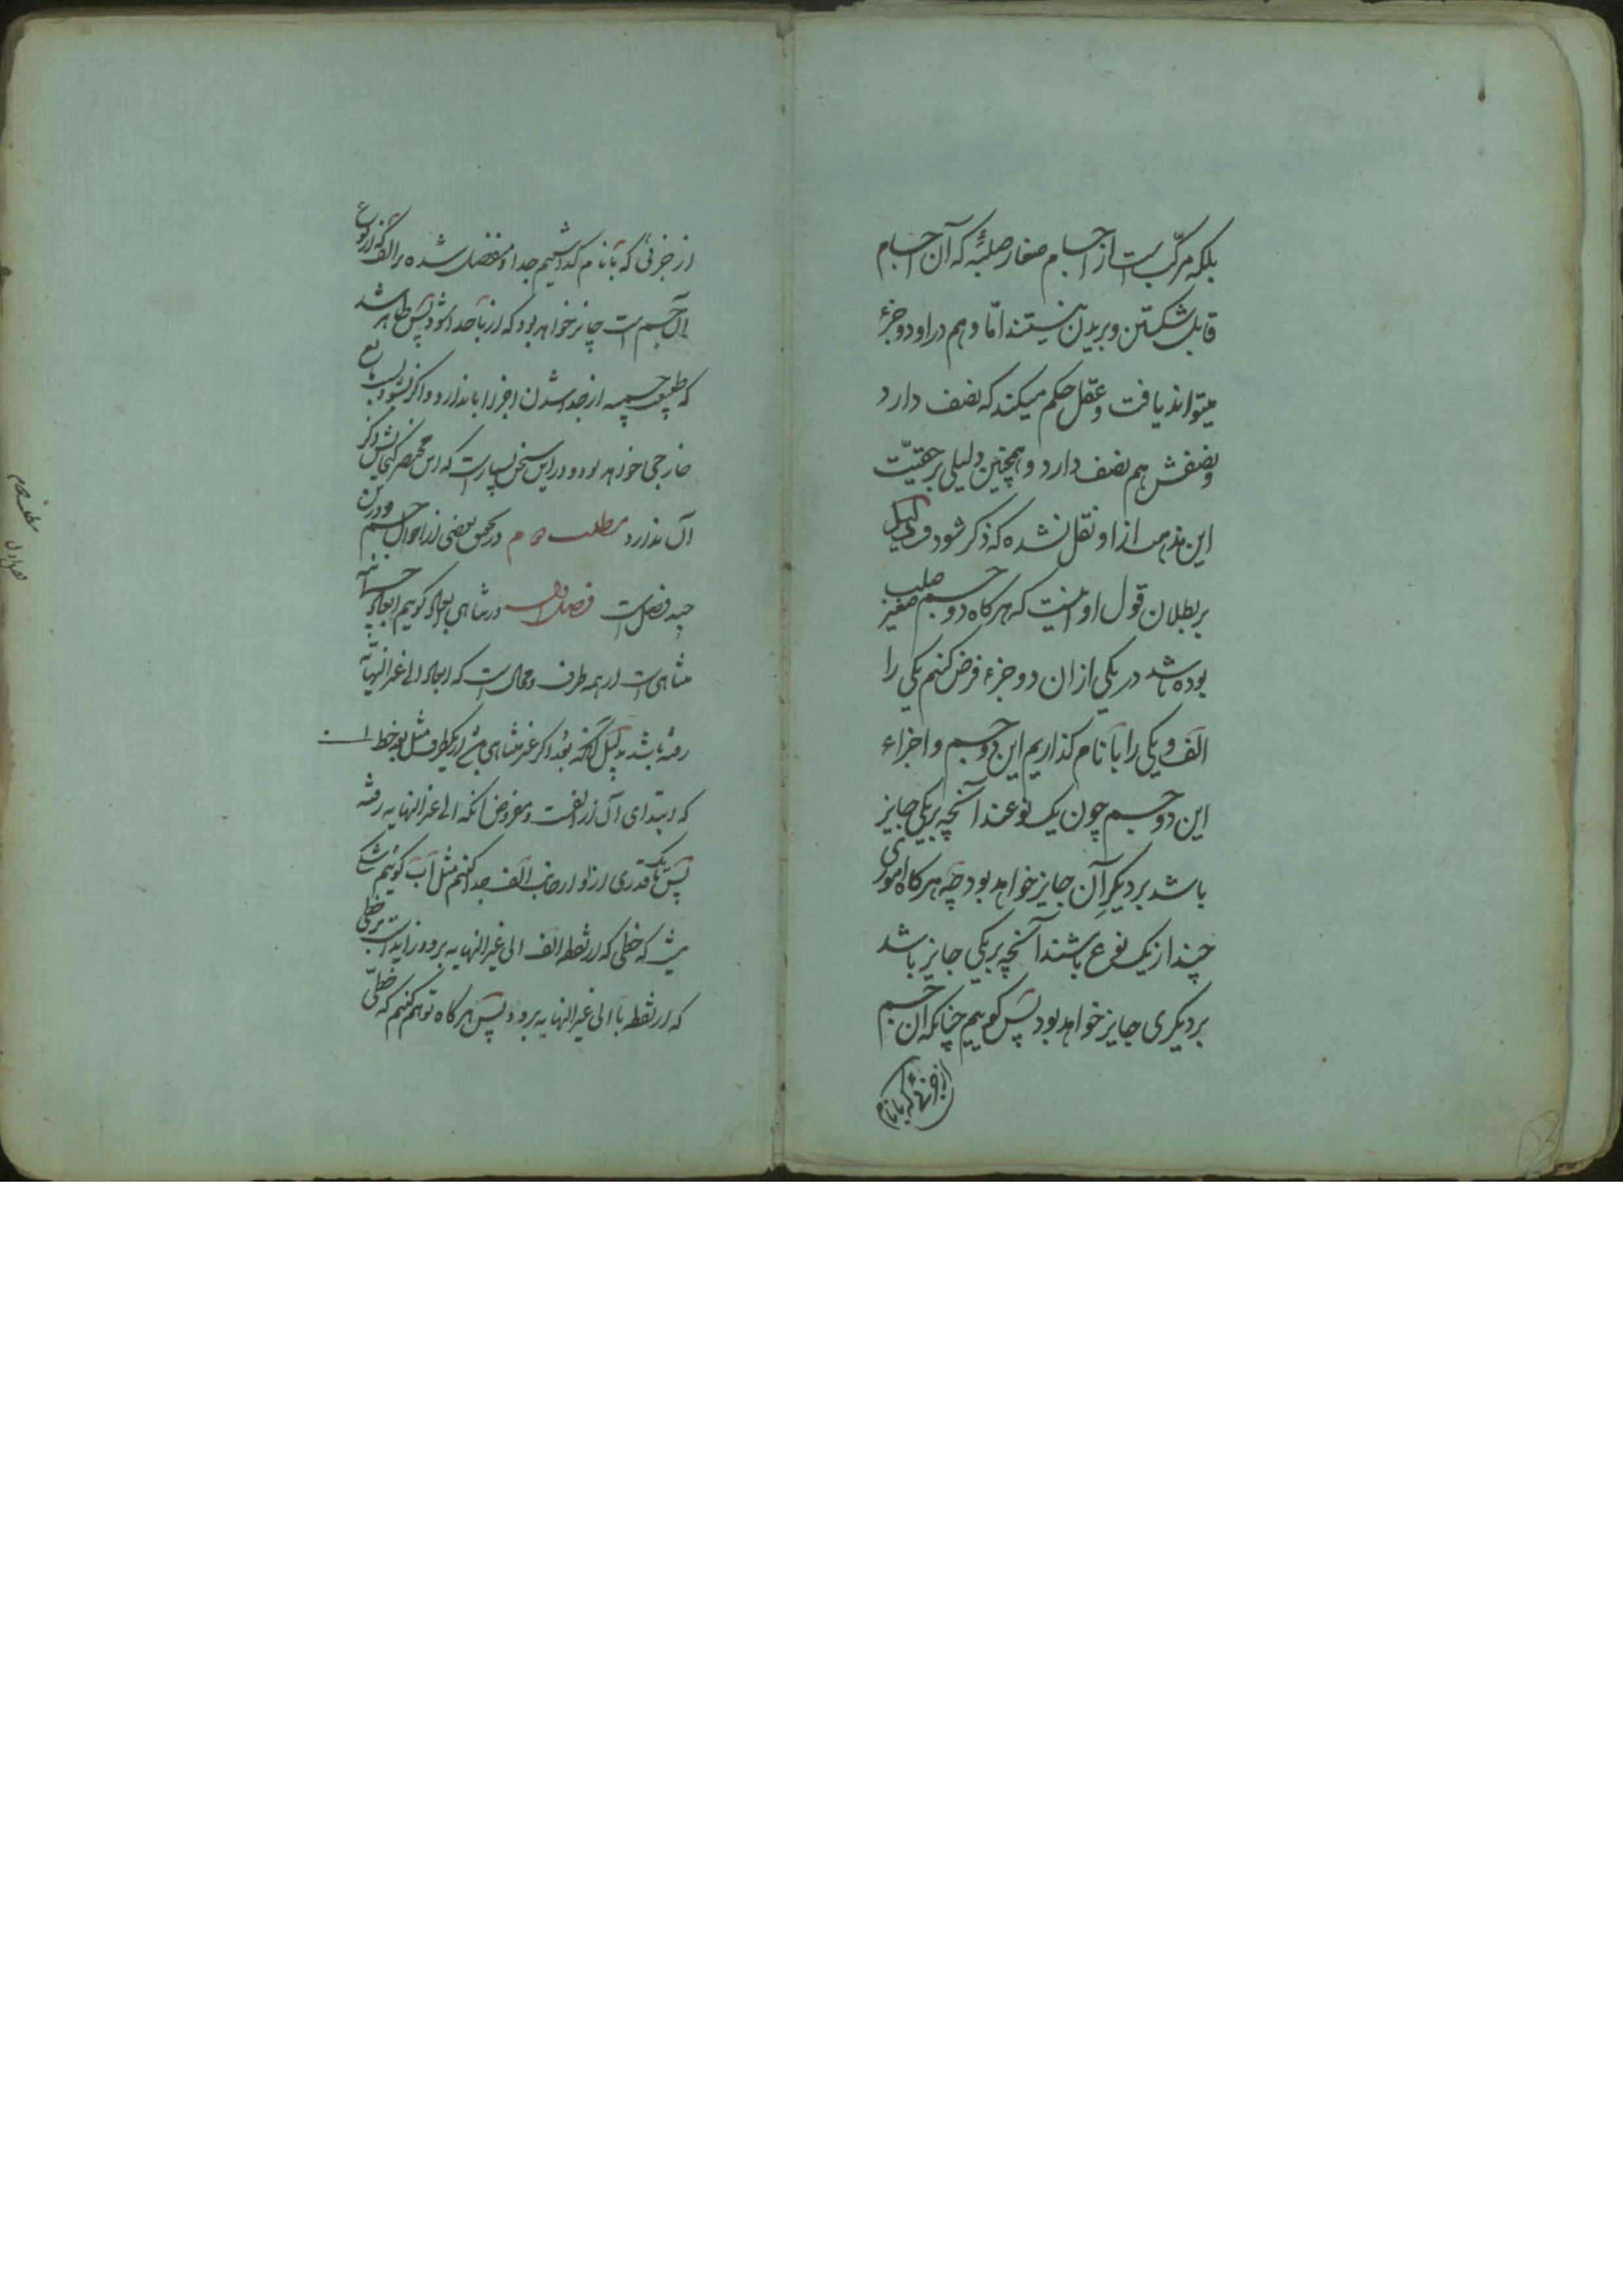 بلکه مرکب است از اجسام صغار صلبه که آن اجسام
قابل شکستن و بریدن نیستند اما وهم در او دو جزء
میتواند یافت و عقل حکم میکند که نصف دارد
و نصفش هم نصف دارد و همچنین دلیلی بر حقیّت
این مذهب از او نقل نشده که ذکر شود و دلیل
بر بطلان قول او اینست که هرکاه دو جسم صلب صغیر
بوده باشد در یکی از ان دو جزء فرض کنیم یکی را
الف و یکی را با نام کذاریم این دو جسم و اجزاء
این دو جسم چون یک نوعند آنچه بر یکی جایز
باشد بر دیکر آن جایز خواهد بود چه هرکاه اموری
چند از یک نوع باشند آنچه بر یکی جایز باشد
بر دیکری جایز خواهد بود پس کوییم چنانکه ان جسم
از جزئی که با نام
از جزئی که با نام کذاشتیم جدا و منفصل شده بر الف که از نوع
آن جسم است جایز خواهد بود که از با جدا شود پس ظاهر شد
که طبیعت جسمیه از جدا شدن اجزا ابا ندارد و اکر نشود بسبب مانع
خارجی خواهد بود و در این سخن بسیار است که این مختصر کنجایش ذکر
آن ندارد مطلب دوم در تحقیق بعضی از احوال جسم و در آن
چند فصل است فصل اول در تناهی ابعاد کوییم ابعاد جسمانیه
متناهی است از همه طرف و محال است که ابعاد الی غیر النهایه
رفته باشد بدلیل آنکه بُعد اکر غیر متناهی باشد از یکطرف مثل بُعد خط ا
که ابتدای آن از الفست و مفروض آنکه الی غیر النهایه رفته
پس یک قدری از او از جانب الف جدا کنیم مثل آب کوئیم شکی
نیست که خطی که از نقطه الف الی غیر النهایه برود زاید است بر خطی
که از نقطه با الی غیر النهایه برود پس هرکاه توهم کنیم که خطی
فصل اول